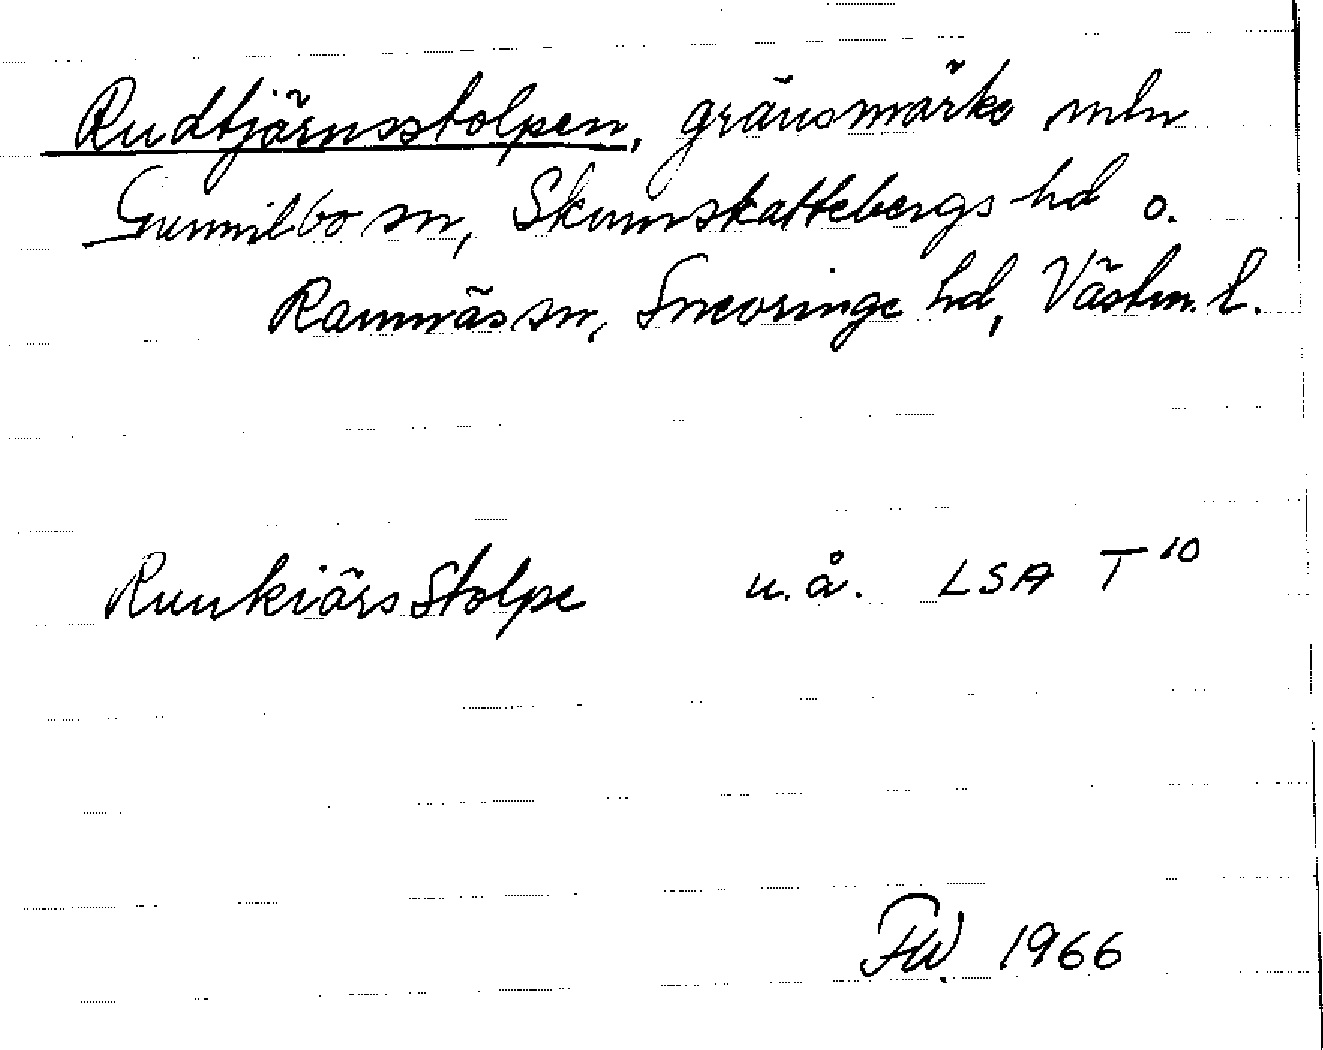 Rudtjärnsstolpen, gränsmärke mln
Gunnilbo sn, Skinnskattebergs hd o.
Ramnäs sn, Snevringe hd, Västm. l.
Runkiärs Stolpe u.å. LSA T 10
FW. 1966